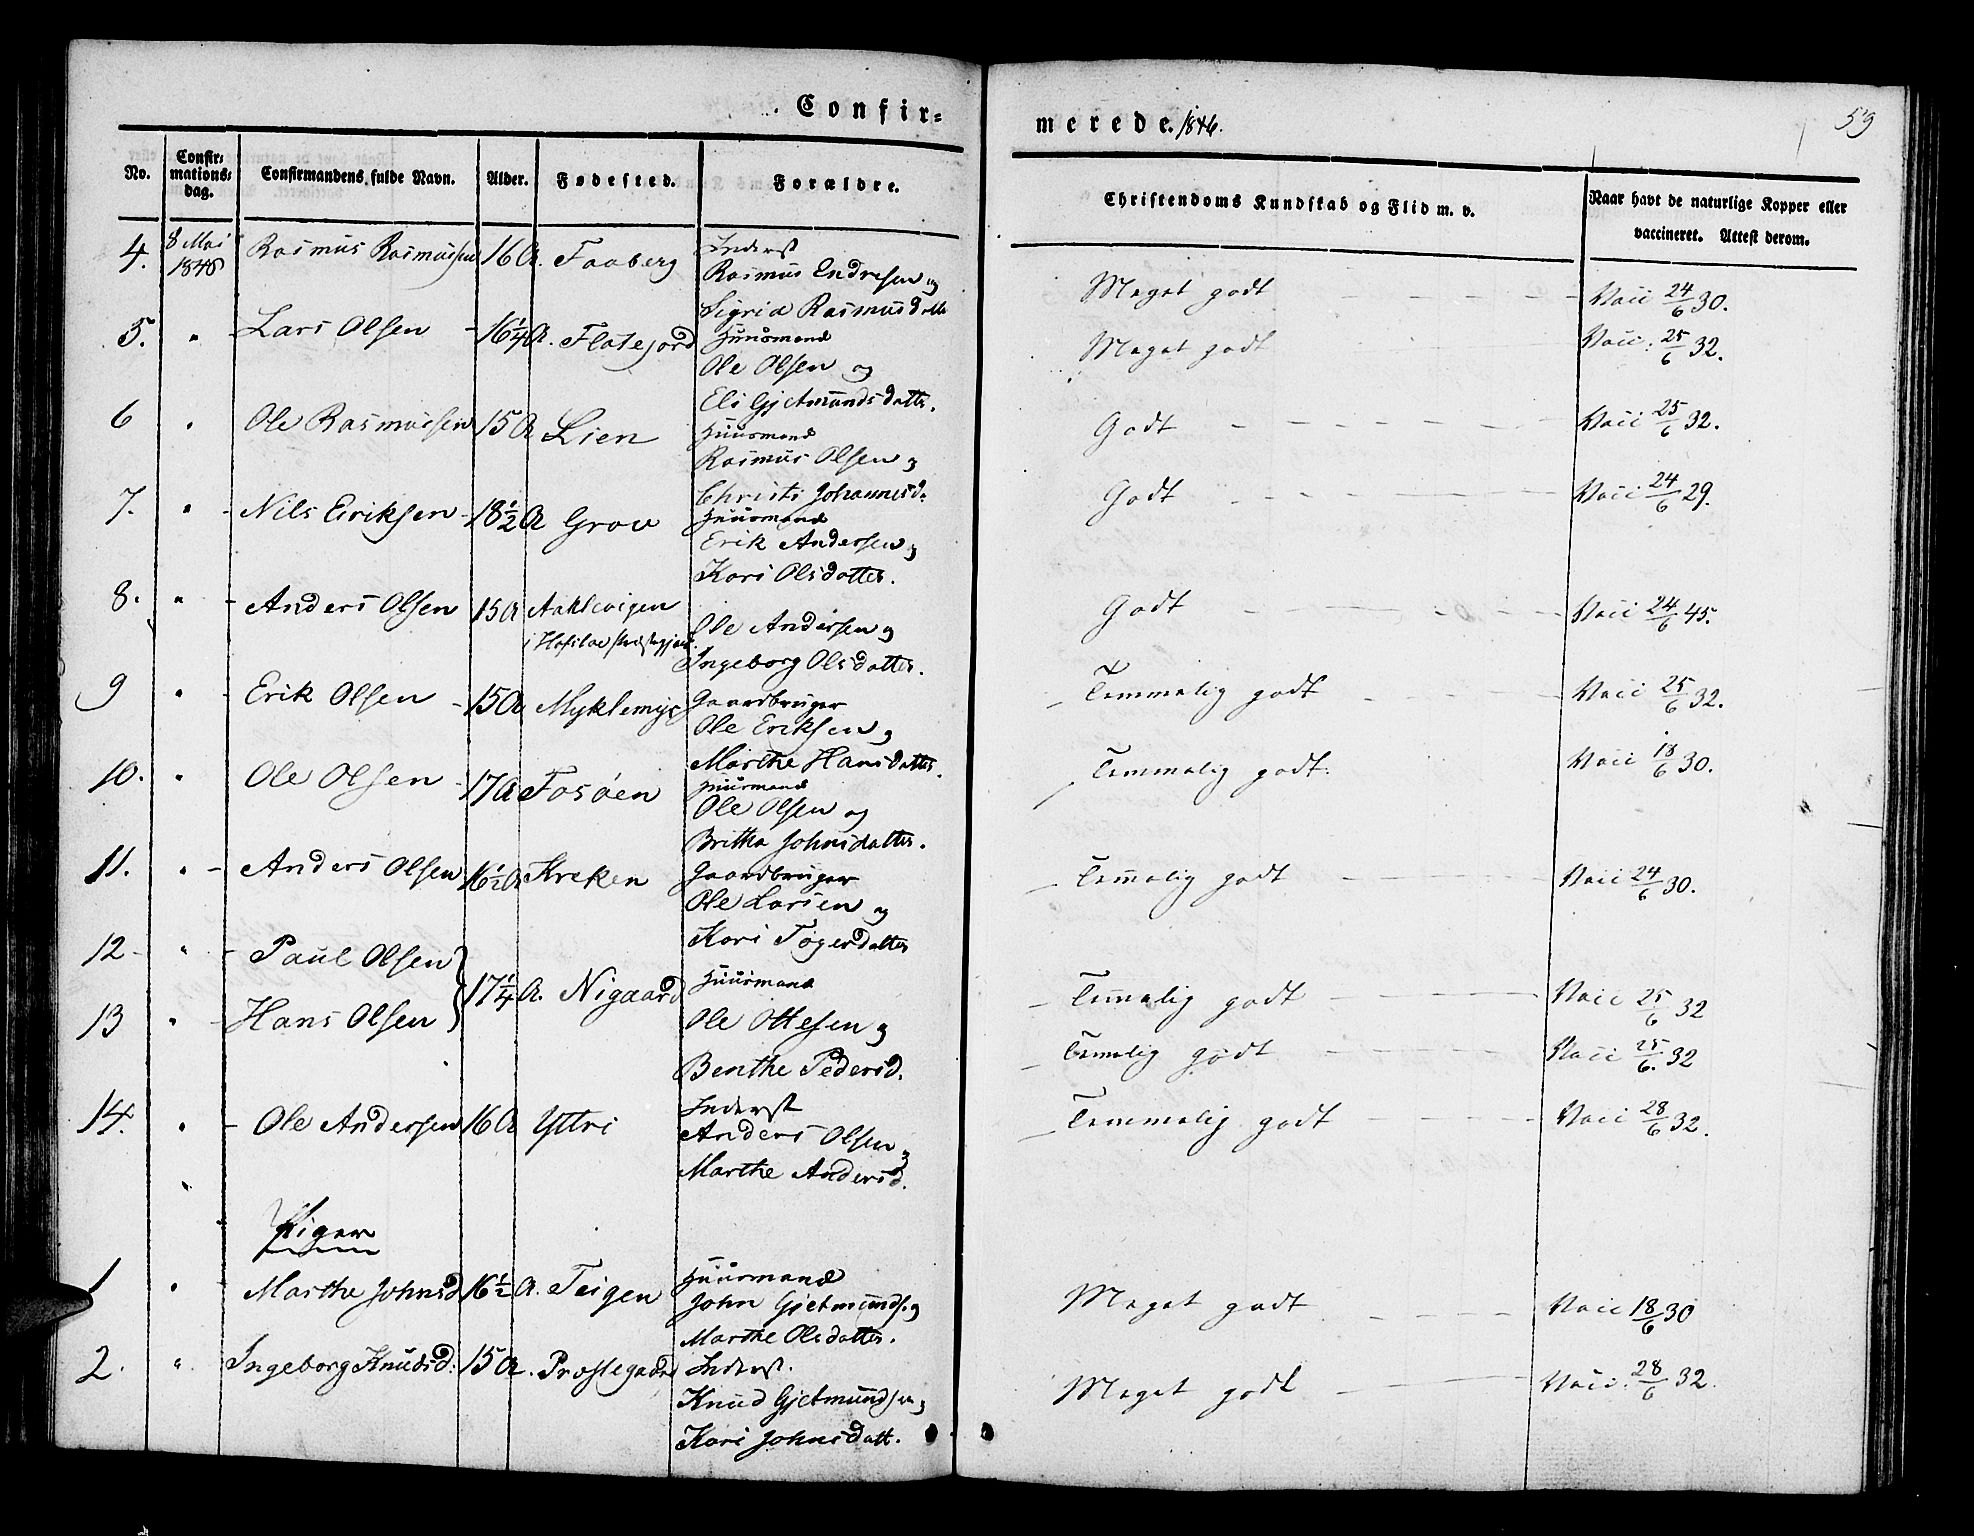 Confir=
merede. 1846.
59
No.
Confir=
mations=
dag.
Confirmandens fulde Navn.
Alder.
Fødested.
Forældre.
Christendoms Kundskab og Flid m. v.
Naar havt de naturlige Kopper eller
vaccineret. Attest derom.
4. 8 Mai Rasmus Rasmussen 16 A. Faaberg Inderst
Rasmus Endresen og
Sigrid Rasmusdatte
Meget godt Vacc 24/6 30.
5. " Lars Olsen 16 1/4 A. Flatejord Huusmand
Ole Olsen og
Eli Gjetmundsdatte.
Meget godt Vacc: 25/6 32.
6 " Ole Rasmussen 15 A Lien Huusmand
Rasmus Olsen og
Christi Johannesd.
Godt Vacc 25/6 32.
7. " Nils Eriksen 18 1/2 A Grov Huusmand
Erik Andersen og
Kari Olsdatter.
Godt Vacc 24/6 29.
8. " Anders Olsen 15 A
Ole Andersen og
Ingeborg Olsdatter.
Godt Vacc 24/6 45.
9 " Erik Olsen 15 A Myklemyr Gaardbruger
Ole Eriksen og
Marthe Hansdatter.
Temmelig godt Vacc 25/6 32.
10. " Ole Olsen 17 A Fosøen Huusmand
Ole Olsen og
Britha Johnsdatter.
Temmelig godt. Vacc 18/6 30.
11. " Anders Olsen 16 1/2 A Kreken Gaardbruger
Ole Larsen og
Kari Togersdatter
Temelig godt Vacc 24/6 30.
12 " Paul Olsen
13 " Hans Olsen 17 1/4 A. Nigaard Huusmand
Ole Ottesen og
Benthe Pedersd.
Temelig godt Vacc 25/6 32
Temelig godt Vacc 25/6 32
14. " Ole Andersen 16 A Yttri Inderst
Anders Olsen og
Marthe Andersd.
Temmelig godt Vacc 28/6 32.
Piger
1 " Marthe Johnsd 16 1/2 A. Teigen Huusmand
John Gjetmunds. og
Marthe Olsdatter.
Meget godt Vacc 18/6 30
2. " Ingeborg Knudsd. 15 A. Præstegaard Inderst.
Knud Gjetmundsen og
Kari Johnsdatt.
Meget godt Vacc. 28/6 32.